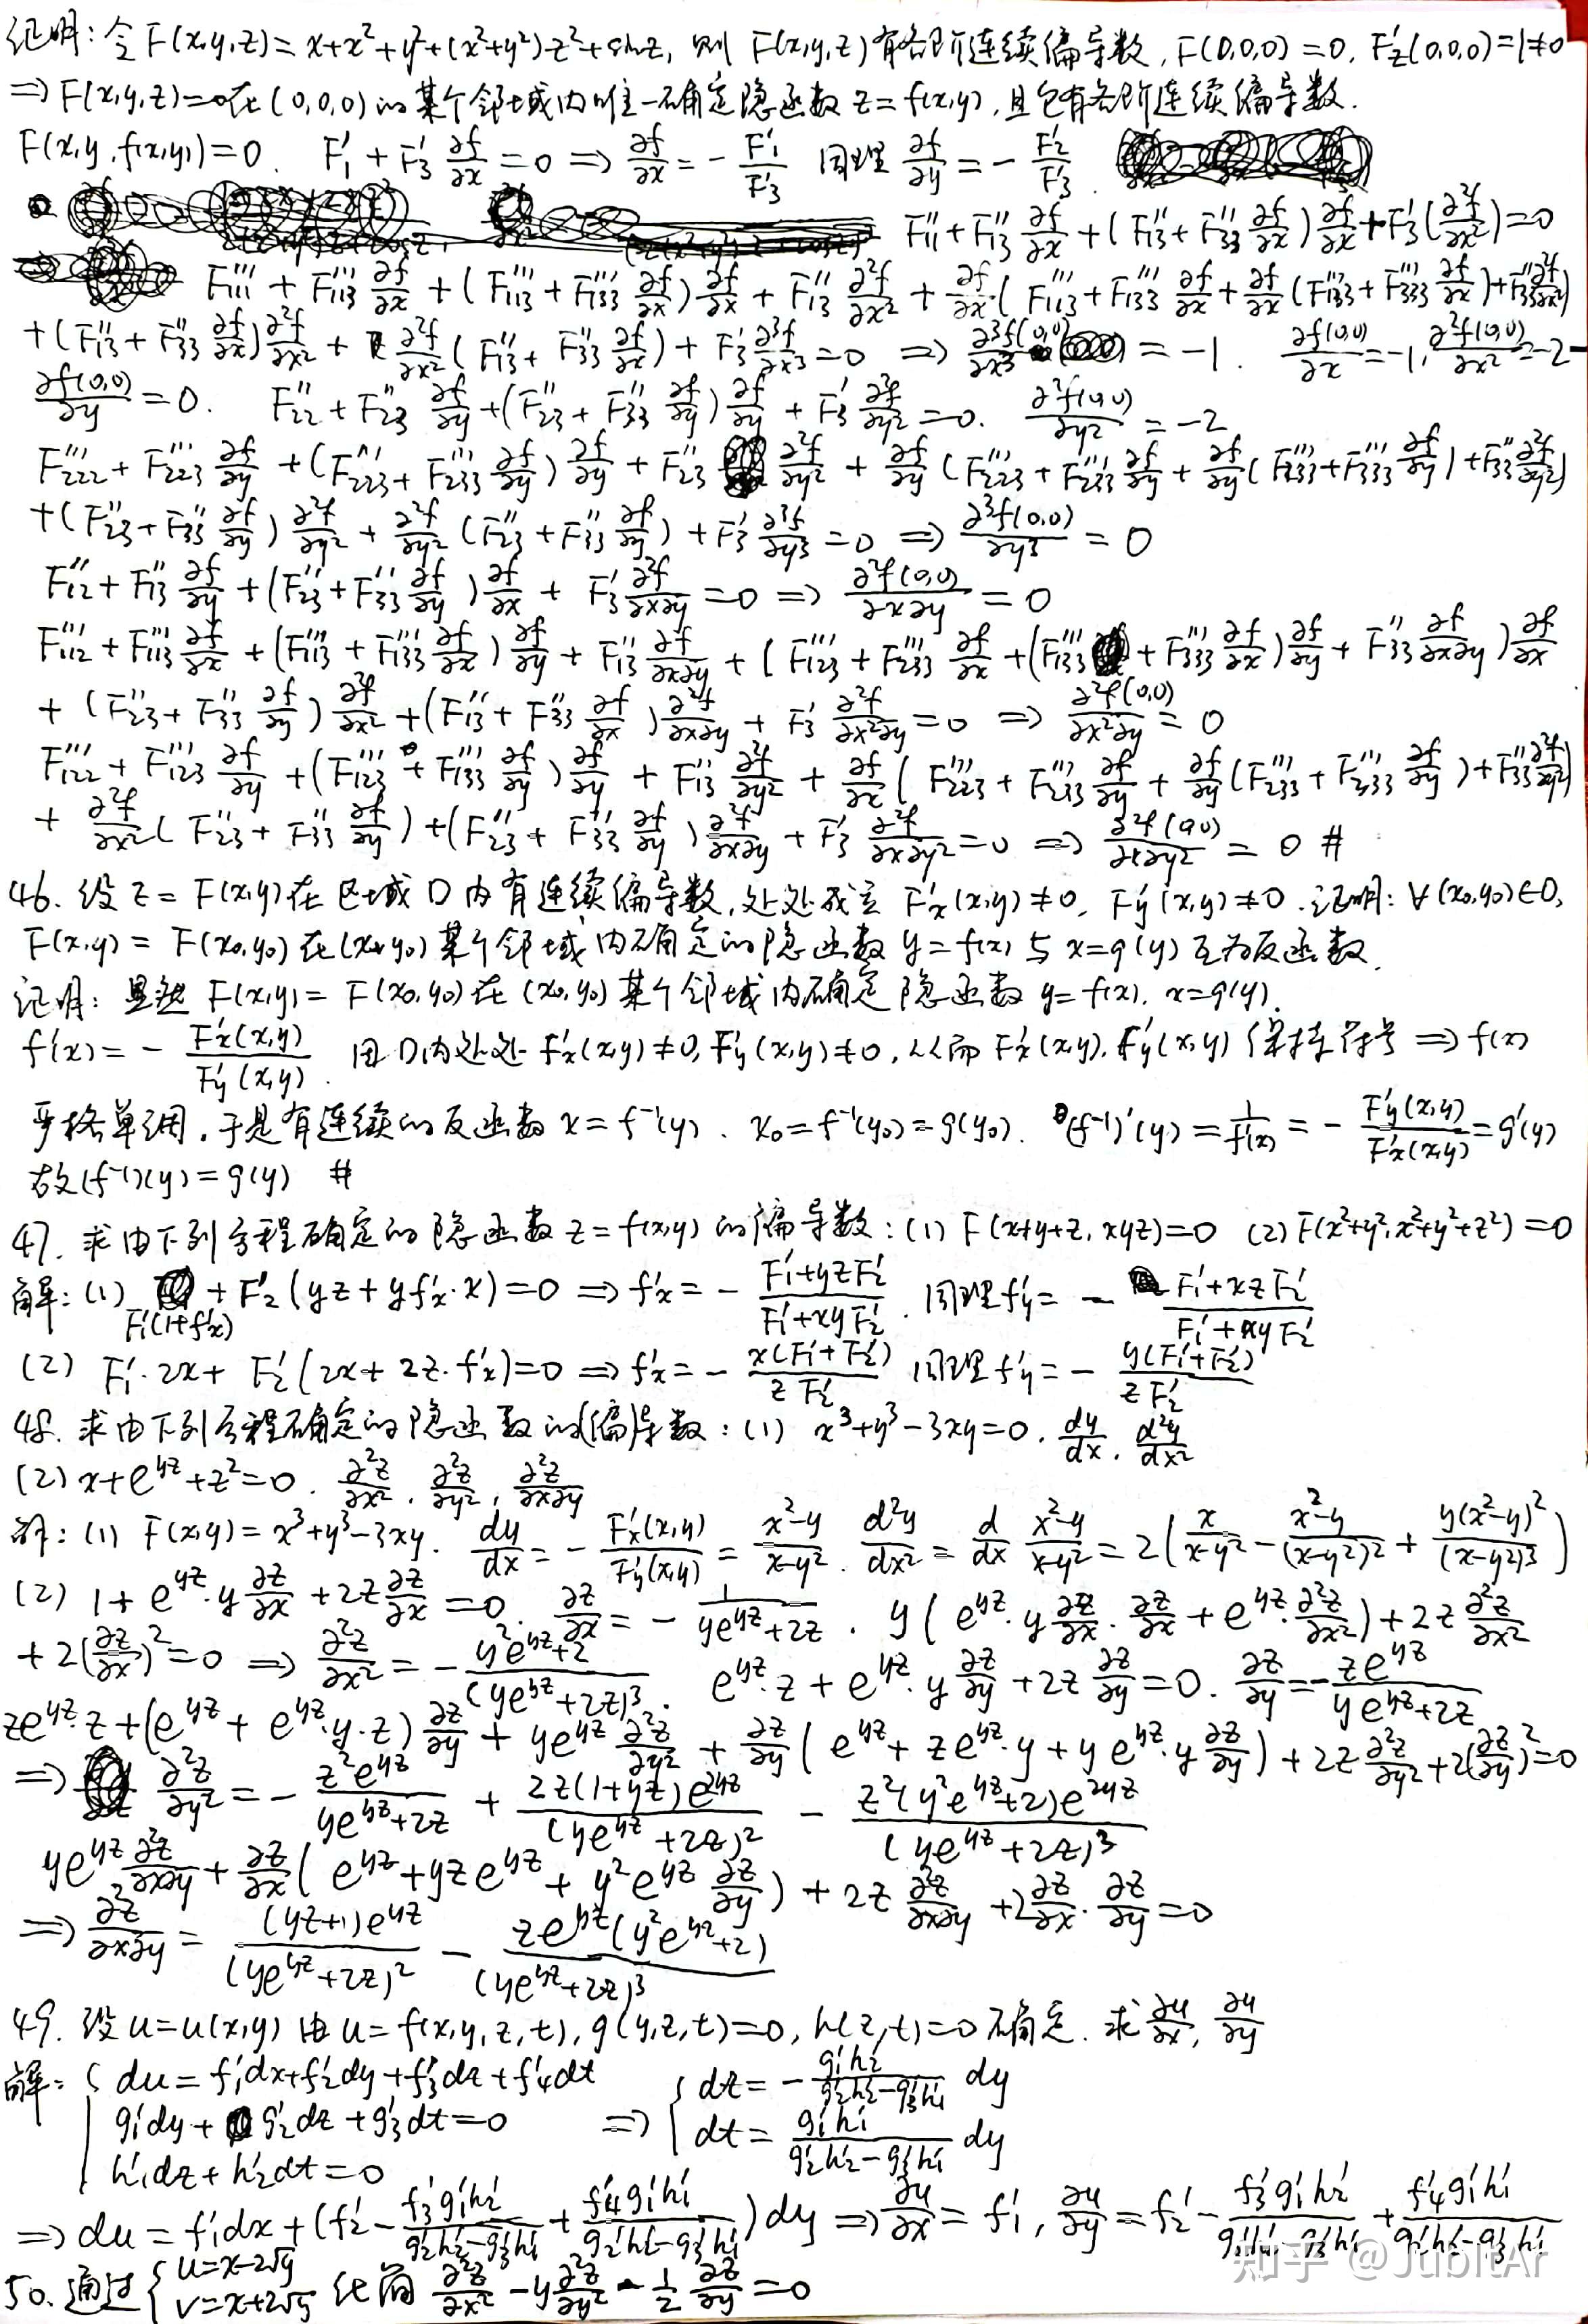 证明: 令 F(x,y,z)=x+x²+y²+(x²+y²)·z²+sinz, 则 F(x,y,z)有各阶连续偏导数, F(0,0,0)=0, F'z(0,0,0)=1≠0
⇒ F(x,y,z)=0在(0,0,0)的某个邻域内唯一确定隐函数 z=f(x,y), 且它有各阶连续偏导数.
F(x,y,f(x,y))=0. F'1+F'3 ∂f/∂x=0 ⇒ ∂f/∂x=-F'1/F'3 同理 ∂f/∂y=-F'2/F'3.
F''11+F''13 ∂f/∂x+(F''13+F''33 ∂f/∂x)∂f/∂x+F'3(∂²f/∂x²)=0
F'''111+F'''113 ∂f/∂x+(F'''113+F'''133 ∂f/∂x)∂f/∂x+F''13 ∂²f/∂x²+∂f/∂x·(F'''113+F'''133 ∂f/∂x+∂f/∂x(F'''133+F'''333 ∂f/∂x)+F''33 ∂²f/∂x²)
+(F''13+F''33 ∂f/∂x)∂²f/∂x²+∂²f/∂x²(F''13+F''33 ∂f/∂x)+F'3 ∂³f/∂x³=0 ⇒ ∂³f(0,0)/∂x³=-1. ∂f(0,0)/∂x=-1, ∂²f(0,0)/∂x²=-2
∂f(0,0)/∂y=0. F''22+F''23 ∂f/∂y+(F''23+F''33 ∂f/∂y)∂f/∂y+F'3 ∂²f/∂y²=0. ∂²f(0,0)/∂y²=-2
F'''222+F'''223 ∂f/∂y+(F'''223+F'''233 ∂f/∂y)∂f/∂y+F''23 ∂²f/∂y²+∂f/∂y(F'''223+F'''233 ∂f/∂y+∂f/∂y(F'''233+F'''333 ∂f/∂y)+F''33 ∂²f/∂y²)
+(F''23+F''33 ∂f/∂y)∂²f/∂y²+∂²f/∂y²(F''23+F''33 ∂f/∂y)+F'3 ∂³f/∂y³=0 ⇒ ∂³f(0,0)/∂y³=0
F''12+F''13 ∂f/∂y+(F''23+F''33 ∂f/∂y)∂f/∂x+F'3 ∂²f/∂x∂y=0 ⇒ ∂²f(0,0)/∂x∂y=0
F'''112+F'''113 ∂f/∂x+(F'''113+F'''133 ∂f/∂x)∂f/∂y+F''13 ∂²f/∂x∂y+(F'''123+F'''233 ∂f/∂x+(F'''133+F'''333 ∂f/∂x)∂f/∂y+F''33 ∂f/∂x∂y)∂f/∂x
+(F''23+F''33 ∂f/∂y)∂²f/∂x²+(F''13+F''33 ∂f/∂x)∂²f/∂x∂y+F'3 ∂²f/∂x²∂y=0 ⇒ ∂²f(0,0)/∂x²∂y=0
F'''122+F'''123 ∂f/∂y+(F'''123+F'''133 ∂f/∂y)∂f/∂y+F''13 ∂²f/∂y²+∂f/∂x(F'''223+F'''233 ∂f/∂y+∂f/∂y(F'''233+F'''333 ∂f/∂y)+F''33 ∂²f/∂y²)
+∂²f/∂x²(F''23+F''33 ∂f/∂y)+(F''23+F''33 ∂f/∂y)∂²f/∂x∂y+F'3 ∂²f/∂x∂y²=0 ⇒ ∂²f(0,0)/∂x∂y²=0 #
46. 设 z=F(x,y)在区域D内有连续偏导数,处处成立 F'x(x,y)≠0, F'y(x,y)≠0. 证明: ∀(x₀,y₀)∈D,
F(x,y)=F(x₀,y₀)在(x₀,y₀)某个邻域内确定的隐函数 y=f(x)与x=g(y)互为反函数.
证明: 显然 F(x,y)=F(x₀,y₀)在(x₀,y₀)某个邻域内确定隐函数 y=f(x), x=g(y).
f'(x)=-F'x(x,y)/F'y(x,y). 因D内处处 F'x(x,y)≠0, F'y(x,y)≠0, 从而 F'x(x,y), F'y(x,y) 保持符号 ⇒ f(x)
严格单调, 于是有连续的反函数 x=f⁻¹(y). x₀=f⁻¹(y₀)=g(y₀). (f⁻¹)'(y)=1/f'(x)=-F'y(x,y)/F'x(x,y)=g'(y)
故(f⁻¹)(y)=g(y) #
47. 求由下列方程确定的隐函数 z=f(x,y)的偏导数: (1) F(x+y+z, xyz)=0 (2) F(x²+y², x²+y²+z²)=0
解: (1) F'1(1+f'x)+F'2(yz+yf'x·x)=0 ⇒ f'x=-(F'1+yzF'2)/(F'1+xyF'2). 同理 f'y=-(F'1+xzF'2)/(F'1+xyF'2)
(2) F'1·2x+F'2(2x+2z·f'x)=0 ⇒ f'x=-x(F'1+F'2)/(zF'2) 同理 f'y=-y(F'1+F'2)/(zF'2)
48. 求由下列方程确定的隐函数的(偏)导数: (1) x³+y³-3xy=0. dy/dx, d²y/dx²
(2) x+e^{yz}+z²=0. ∂²z/∂x², ∂²z/∂y², ∂²z/∂x∂y
解: (1) F(x,y)=x³+y³-3xy. dy/dx=-F'x(x,y)/F'y(x,y)=(x²-y)/(x-y²). d²y/dx²=d/dx (x²-y)/(x-y²)=2(x/(x-y²)-(x²-y)/(x-y²)²+y(x²-y)²/(x-y²)³)
(2) 1+e^{yz}·y ∂z/∂x+2z ∂z/∂x=0. ∂z/∂x=-1/(ye^{yz}+2z). y(e^{yz}·y ∂z/∂x·∂z/∂x+e^{yz}·∂²z/∂x²)+2z ∂²z/∂x²
+2(∂z/∂x)²=0 ⇒ ∂²z/∂x²=-(y²e^{yz}+2)/(ye^{yz}+2z)³. e^{yz}·z+e^{yz}·y ∂z/∂y+2z ∂z/∂y=0. ∂z/∂y=-ze^{yz}/(ye^{yz}+2z)
ze^{yz}·z+(e^{yz}+e^{yz}·y·z)∂z/∂y+ye^{yz} ∂²z/∂y²+∂z/∂y(e^{yz}+ze^{yz}·y+ye^{yz}·y ∂z/∂y)+2z ∂²z/∂y²+2(∂z/∂y)²=0
⇒ ∂²z/∂y²=-z²e^{yz}/(ye^{yz}+2z)+2z(1+yz)e^{2yz}/(ye^{yz}+2z)²-z²(y²e^{yz}+2)e^{2yz}/(ye^{yz}+2z)³
ye^{yz} ∂²z/∂x∂y+∂z/∂x(e^{yz}+yze^{yz}+y²e^{yz} ∂z/∂y)+2z ∂²z/∂x∂y+2∂z/∂x·∂z/∂y=0
⇒ ∂²z/∂x∂y=(yz+1)e^{yz}/(ye^{yz}+2z)²-ze^{yz}(y²e^{yz}+2)/(ye^{yz}+2z)³
49. 设 u=u(x,y)由 u=f(x,y,z,t), g(y,z,t)=0, h(z,t)=0确定. 求 ∂u/∂x, ∂u/∂y
解: { du=f'1dx+f'2dy+f'3dz+f'4dt
g'1dy+g'2dz+g'3dt=0
h'1dz+h'2dt=0
⇒ { dz=-g'1h'2/(g'2h'2-g'3h'1) dy
dt=g'1h'1/(g'2h'2-g'3h'1) dy
⇒ du=f'1dx+(f'2-f'3g'1h'2/(g'2h'2-g'3h'1)+f'4g'1h'1/(g'2h'2-g'3h'1))dy ⇒ ∂u/∂x=f'1, ∂u/∂y=f'2-f'3g'1h'2/(g'2h'2-g'3h'1)+f'4g'1h'1/(g'2h'2-g'3h'1)
50. 通过 { u=x-2√y
v=x+2√y 化简 ∂²z/∂x²-y ∂²z/∂y²-1/2 ∂z/∂y=0
知乎 @JubitAr